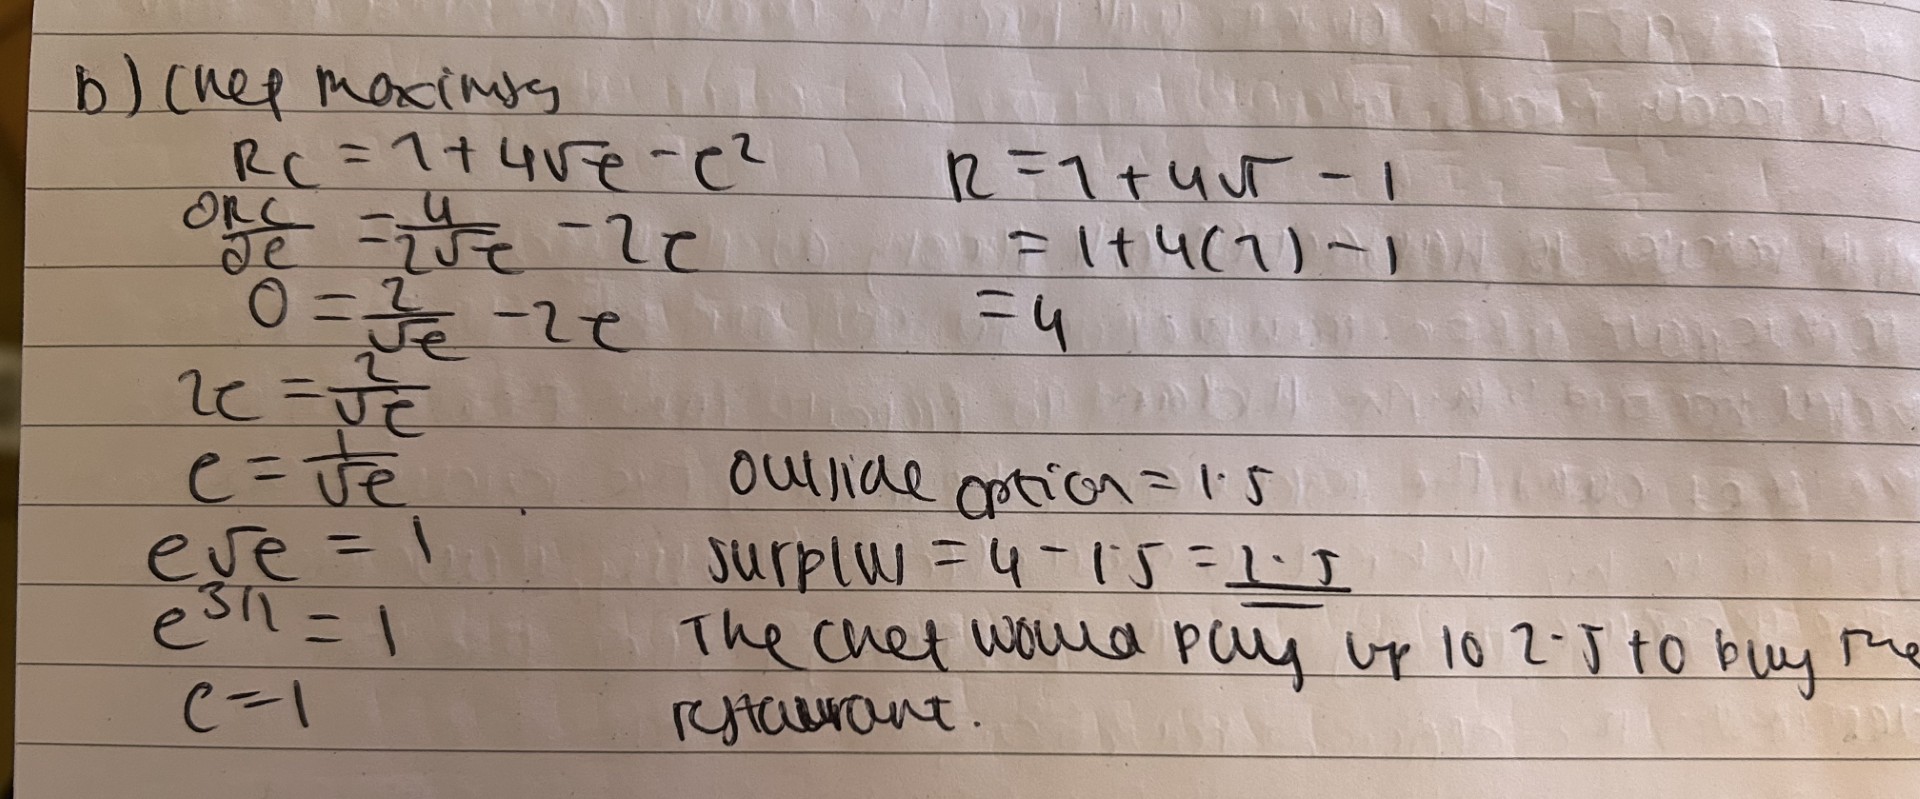 b) Chef maximises
Rc = 1 + 4√e - e²
∂Rc/∂e = 4/2√e - 2e
0 = 2/√e - 2e
2e = 2/√e
e = 1/√e
e√e = 1
e^3/2 = 1
e = 1
R = 1 + 4√1 - 1
= 1 + 4(1) - 1
= 4
Outside option = 1.5
Surplus = 4 - 1.5 = 2.5
The chef would pay up to 2.5 to buy the
restaurant.